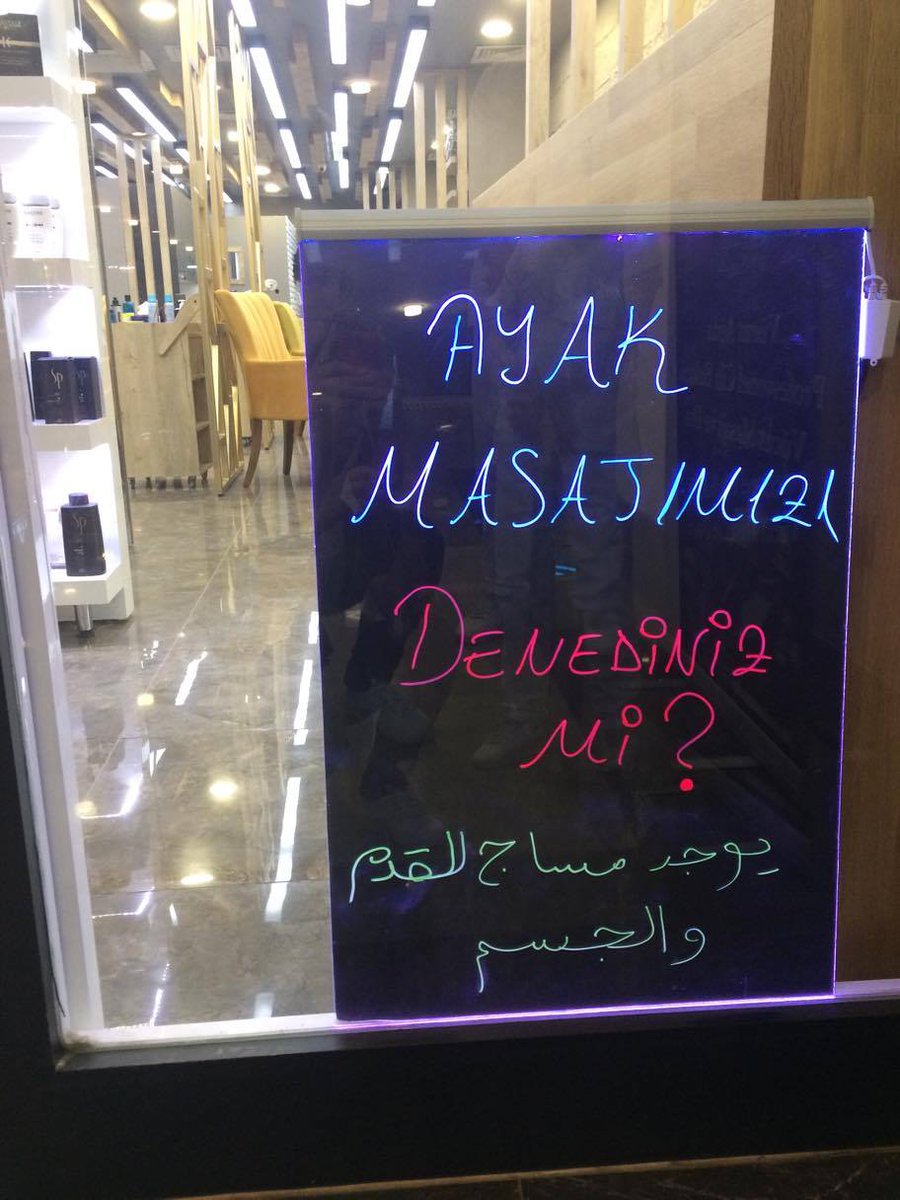 AYAK
MASAJIMIZI
DENEDİNİZ
Mİ?
يوجد مساج للقدم
والجسم
SP
SP